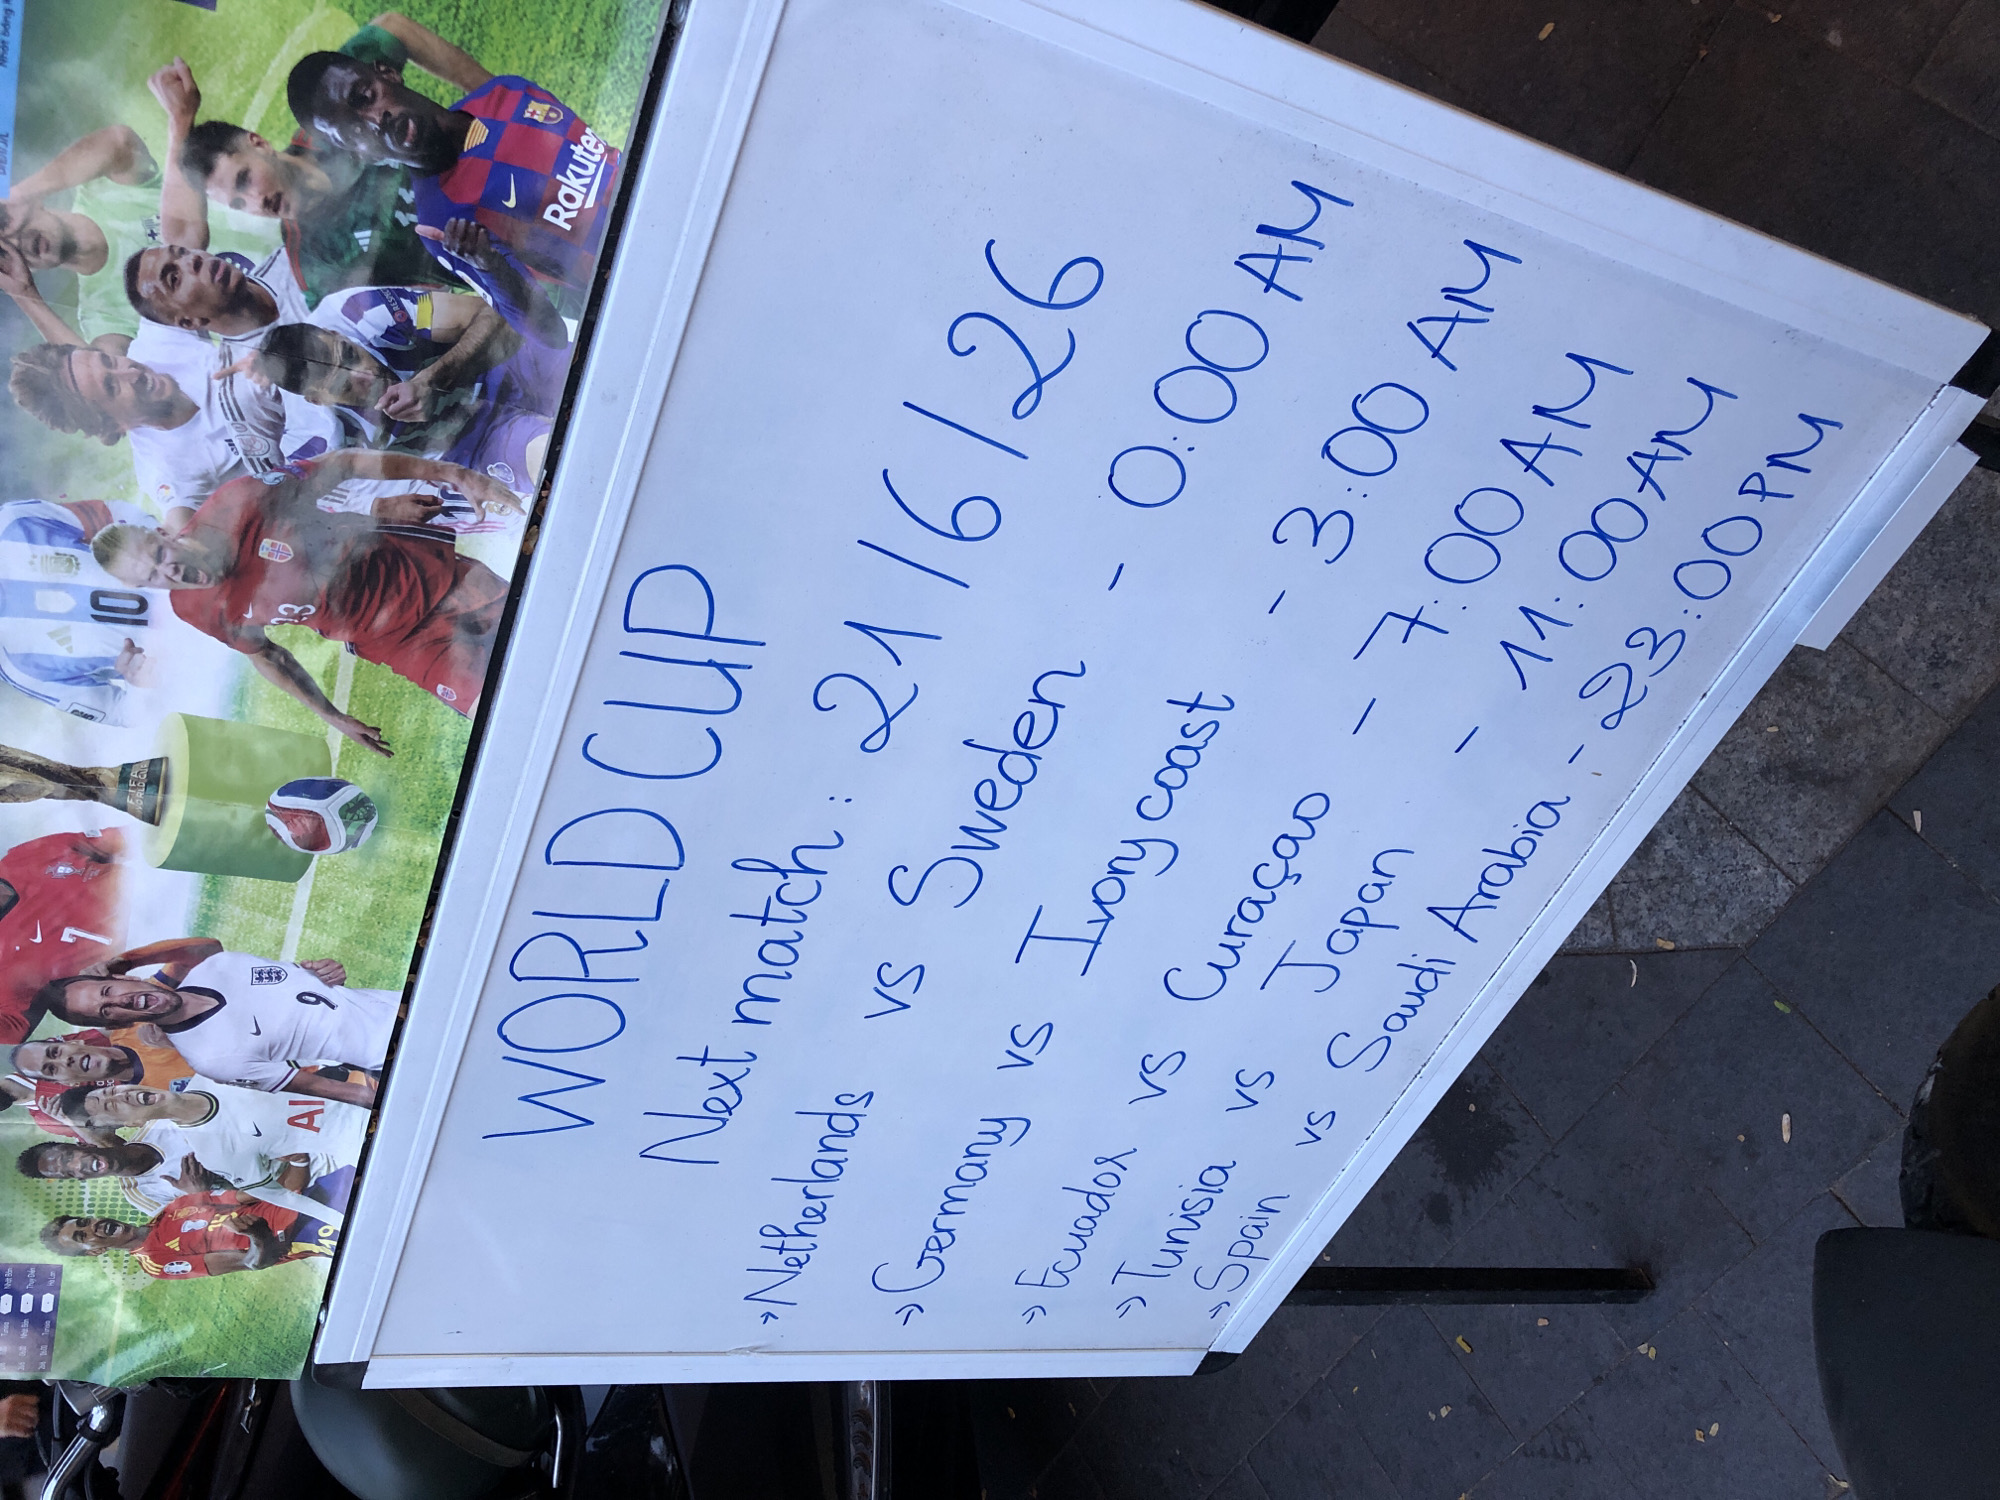 WORLD CUP
Next match : 21/6/26
→ Netherlands vs Sweden - 0:00 AM
→ Germany vs Ivory coast - 3:00 AM
→ Ecuador vs Curaçao - 7:00 AM
→ Tunisia vs Japan - 11:00 AM
→ Spain vs Saudi Arabia - 23:00 PM
Rakuten
10
23
FIFA
WORLD CUP
7
9
AI
19